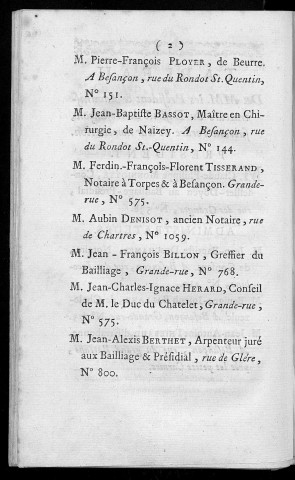 ( 2 )
M. Pierre-François PLOYER, de Beurre.
A Besançon, rue du Rondot St. Quentin,
N° 151.
M. Jean-Baptiste BASSOT, Maître en Chi-
rurgie, de Naizey. A Besançon, rue
du Rondot St.-Quentin, N° 144.
M. Ferdin.-François-Florent TISSERAND,
Notaire à Torpes & à Besançon. Grande-
rue, N° 575.
M. Aubin DENISOT, ancien Notaire, rue
de Chartres, N° 1059.
M. Jean-François BILLON, Greffier du
Bailliage, Grande-rue, N° 768.
M. Jean-Charles-Ignace HERARD, Conseil
de M. le Duc du Chatelet, Grande-rue,
N° 575.
M. Jean-Alexis BERTHET, Arpenteur juré
aux Bailliage & Présidial, rue de Glére,
N° 800.